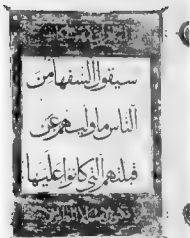 سيقول السفهاء من
الناس ما وليهم عن
قبلتهم التي كانوا عليها